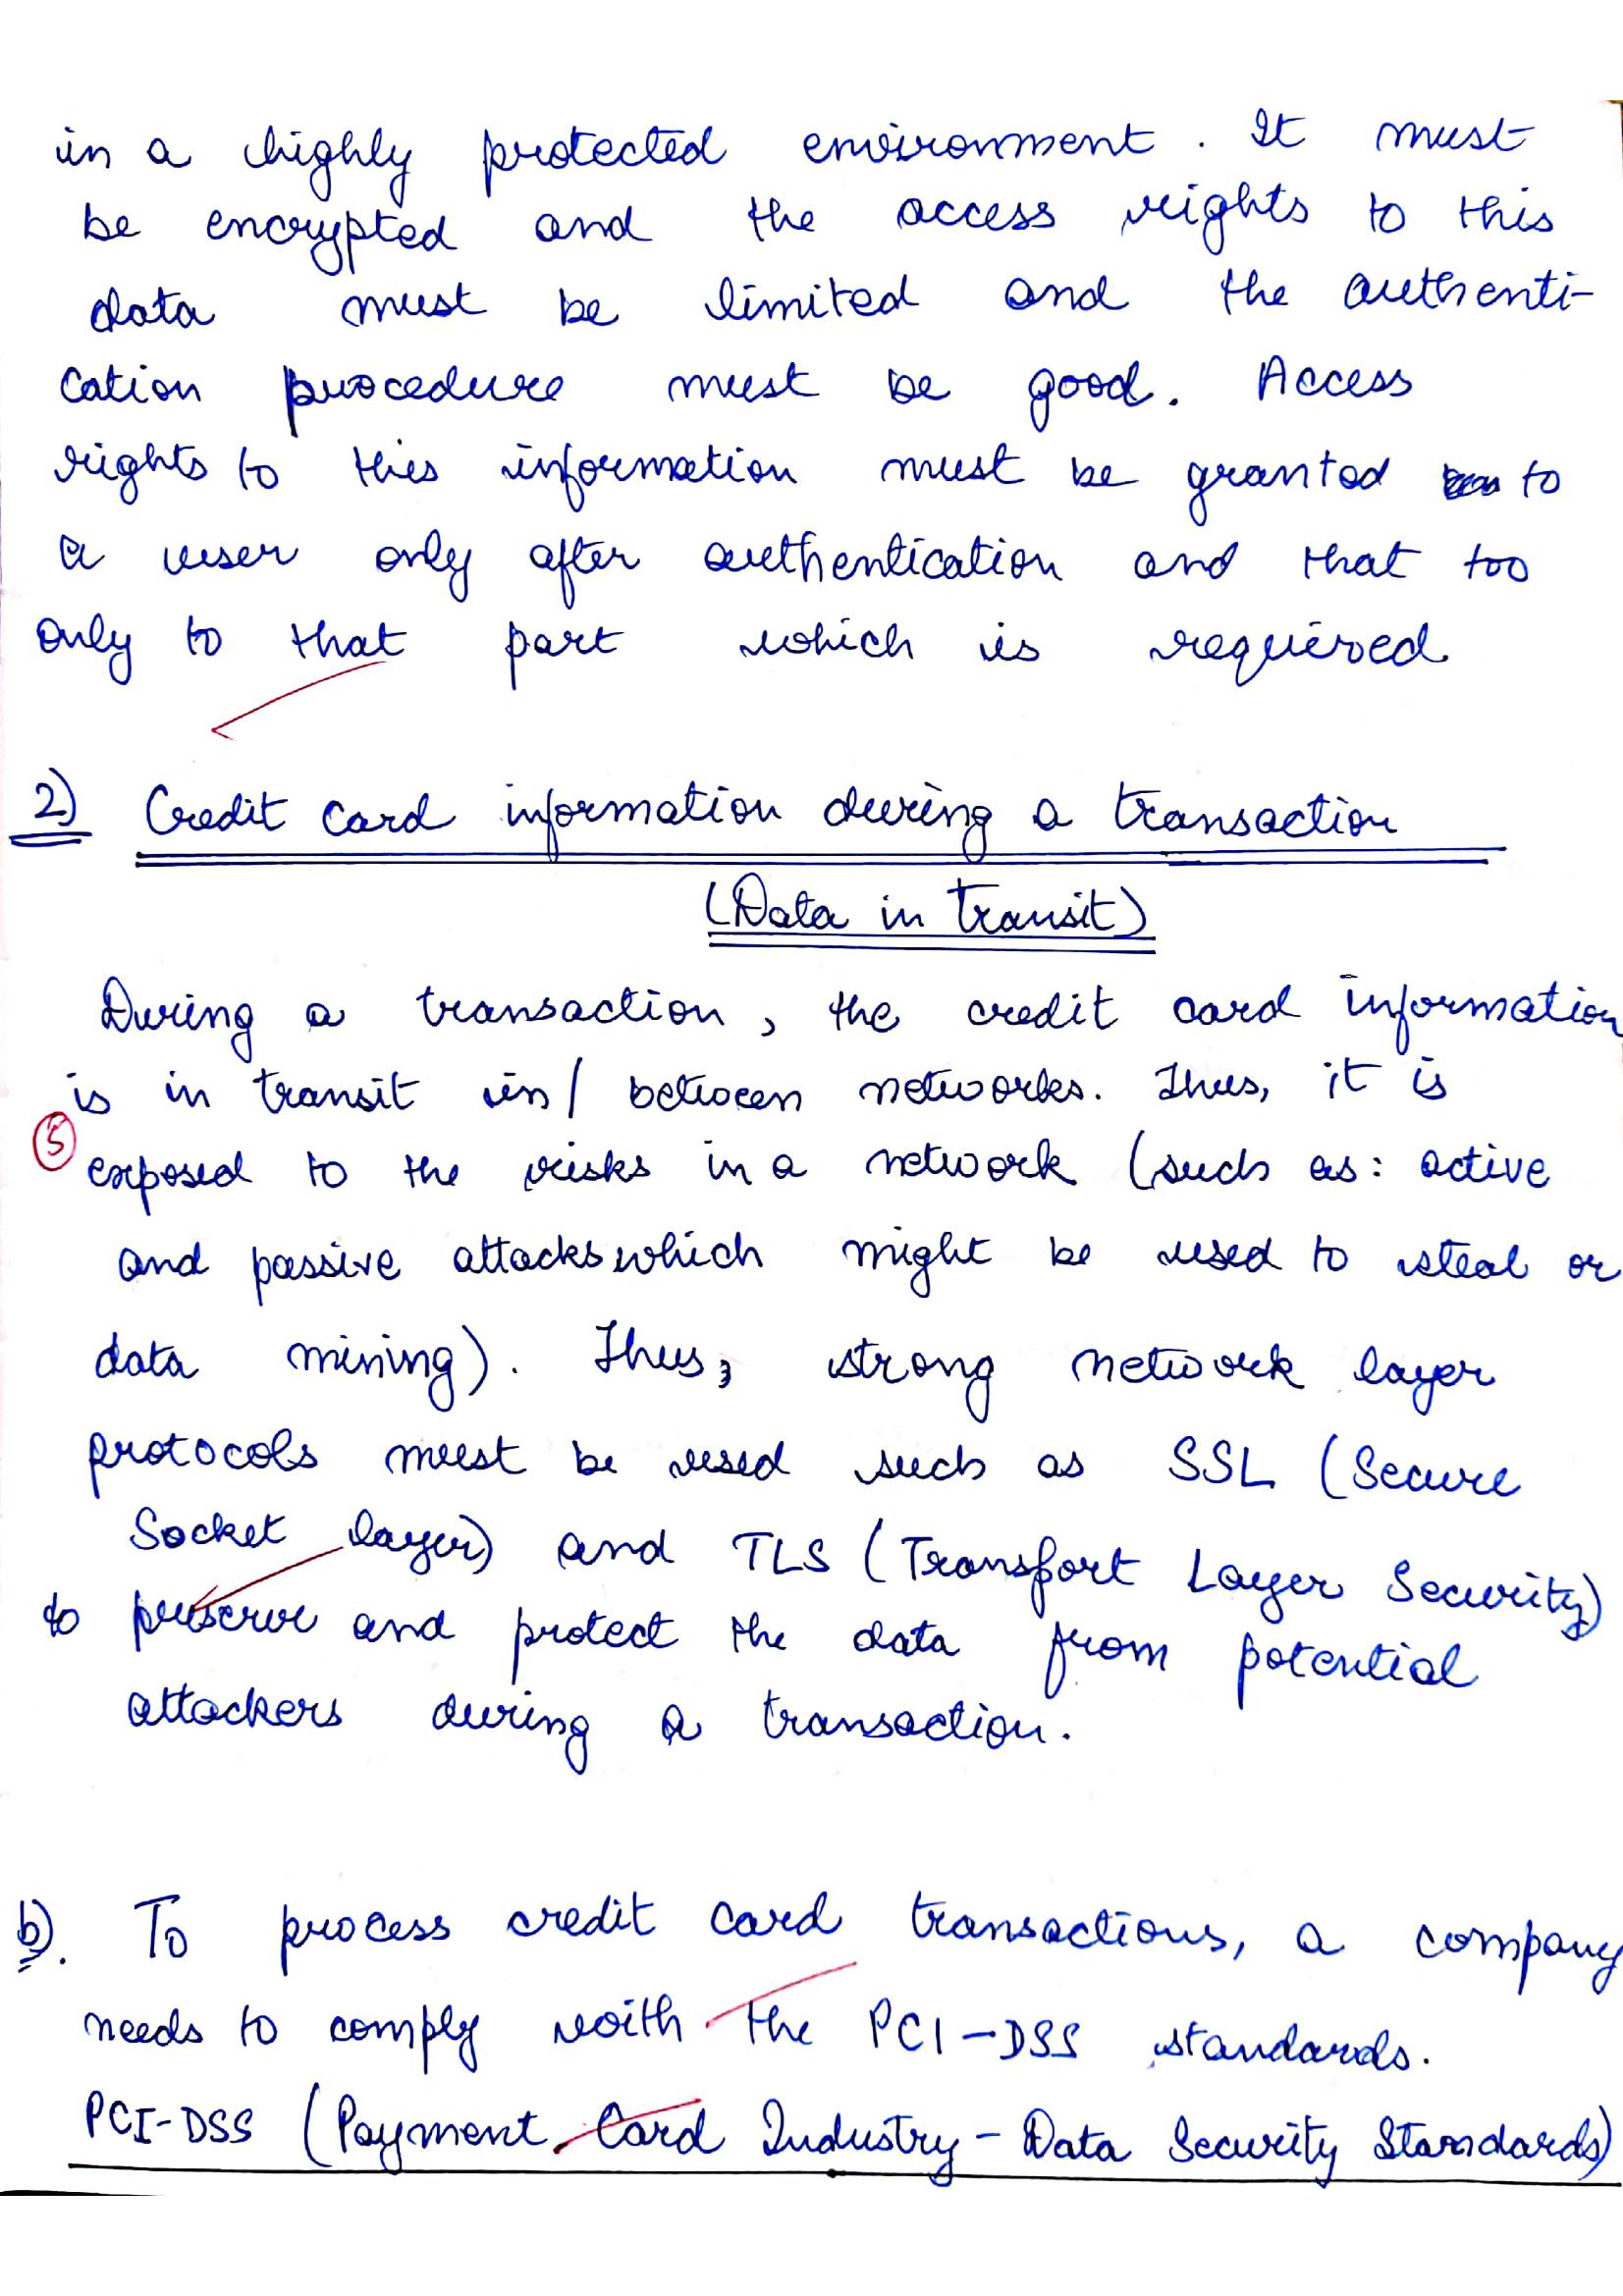 in a highly protected environment. It must
be encrypted and the access rights to this
data must be limited and the authenti-
cation procedure must be good. Access
rights to this information must be granted to
a user only after authentication and that too
only to that part which is required
2) Credit card information during a transaction
(Data in transit)
During a transaction, the credit card information
is in transit in/ between networks. Thus, it is
5
exposed to the risks in a network (such as: active
and passive attacks which might be used to steal or
data mining). Thus, strong network layer
protocols must be used such as SSL (Secure
Socket layer) and TLS (Transport Layer Security)
to preserve and protect the data from potential
attackers during a transaction.
b). To process credit card transactions, a company
needs to comply with the PCI-DSS standards.
PCI-DSS (Payment Card Industry - Data Security Standards)